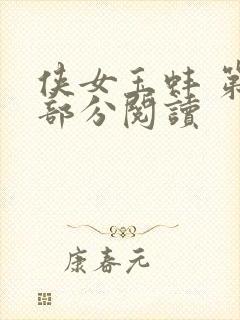 侠女玉蚌 第
部分閱讀
康春元